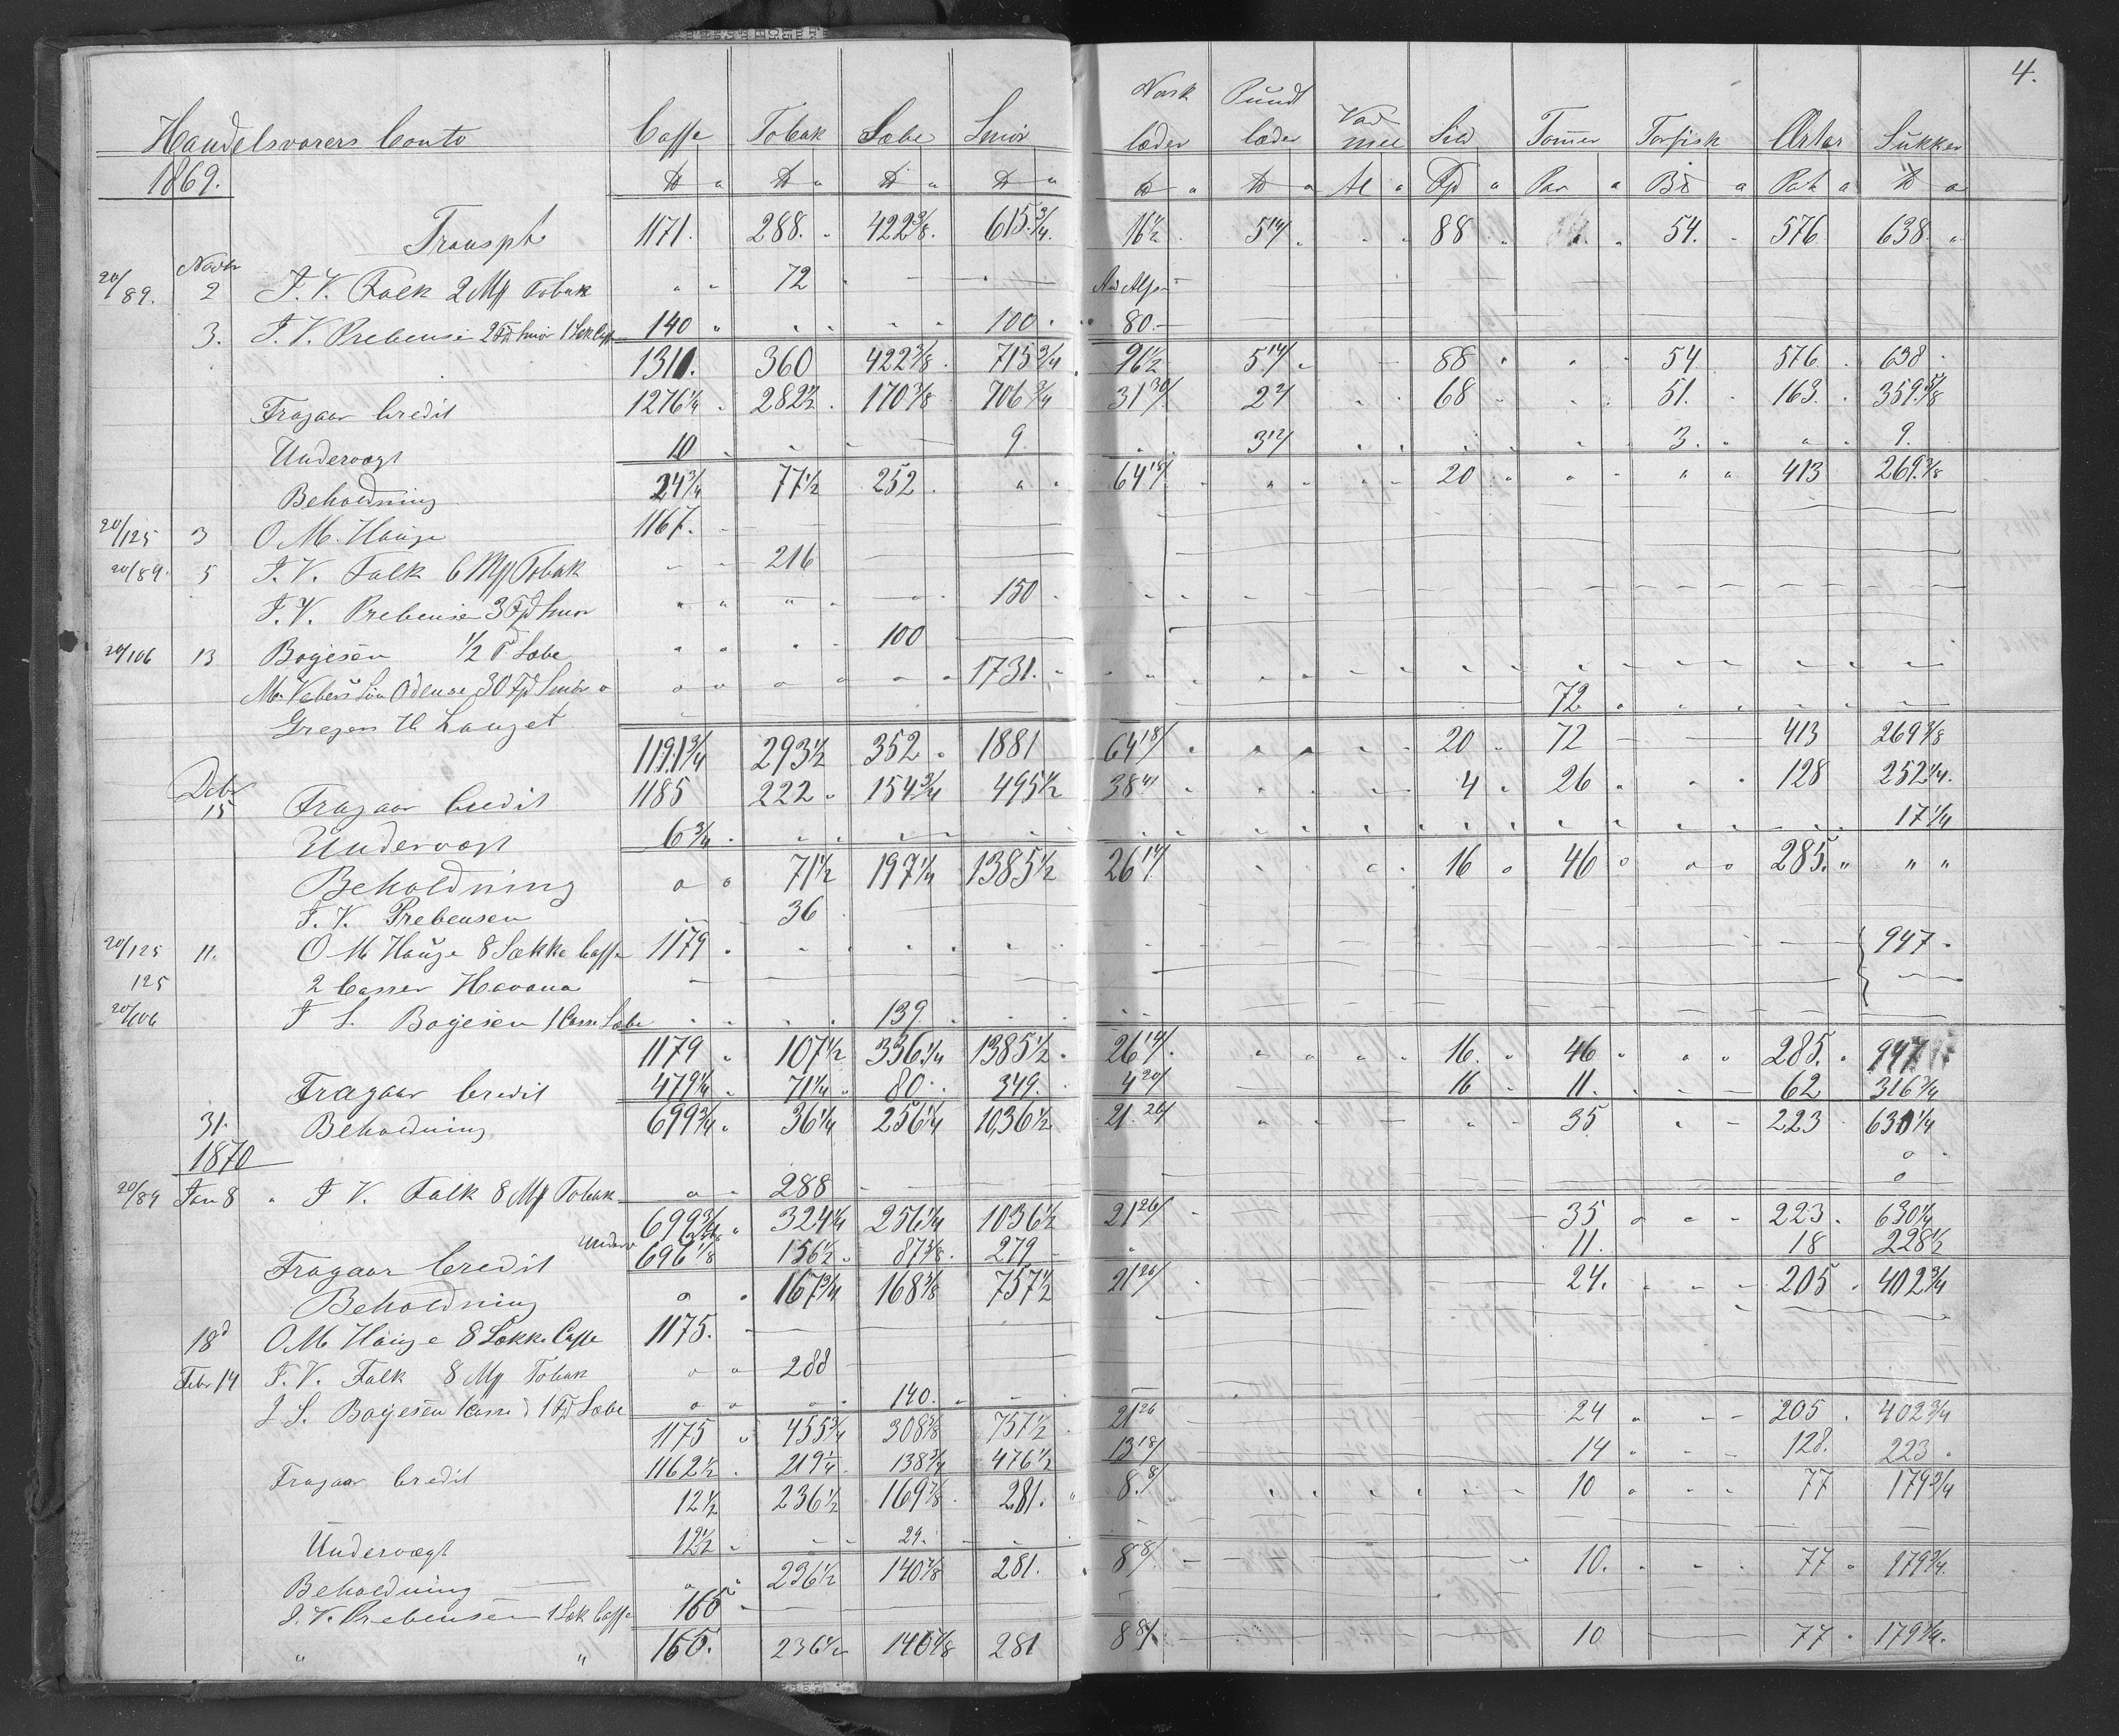 4.
Handelsvarers Conto Caffe Tobak Sæbe Smör Nask læder Pundt læder Vad mel Sild Tömer Torfisk Ærter Sukker
1869. ℔ " ℔ " ℔ " ℔ " ℔ " ℔ " Al " Fd " Par " " Pot " ℔ "
Transpt 1171. 288. " 422 3/8. 615 3/4. 16 1/2 5 14/ 88 54. 576. 638. "
Novbr
20/89. 2 J. V. Falk 2 Mf Tobak " " 72
3. J. V. Prebensen 2 Fd Smör 1 Sæk Caffe 140 " 100 80.—
1311. 360 422 3/8. 715 3/4 96 1/2 5 14/ 88 54 576 638
Fragaar Credit 1276 1/4 282 1/2 170 3/8 706 3/4 31 30/ 2 2/ 68 51. 163. 359 5/8
Undervægt 10 9 3 12/ 3. 9.
Beholdning 24 3/4 77 1/2 252 " " 64 18/ 20 413 269 3/8
20/125 3 O. M. Hauge 1167.
20/89. 5 J. V. Falk 6 Mf Tobak 216
J. V. Prebensen 3 Fd Smör 150
20/106 13 Bogesen 1/2 Sæbe 100
Odense 30 Fd Smör 1731.
Gregers 72
1191 3/4 293 1/2 352 1881 64 18/ 20 72 413 269 3/8
Debr
15 Fragaar Credit 1185 222 154 3/4 495 1/2 38 4/ 4 26 128 252 1/4.
Undervægt 6 3/4 17 1/4
Beholdning 71 1/2 197 1/4 1385 1/2 26 14/ 16 46 285. " "
J. V. Prebensen 36
20/125 11. O M Hauge 8 Sække Caffe 1179 947
125 2 Casser Havana
20/106 J S. Bogesen 1 Casse Sæbe 139
1179 107 1/2 336 1/4 1385 1/2 26 14/ 16 46 285. 947
Fragaar Credit 479 1/4 71 1/4 80 349. 4 20/ 16 11. 62 316 3/4
31. Beholdning 699 3/4 36 1/4 256 1/4 1036 1/2 21 26/ 35 223 630 1/4
1870
20/89 Jan 8 J V. Falk 8 Mf Tobak 288
699 3/4 324 1/4 256 1/4 1036 1/2 21 26/ 35 223. 630 1/4
Fragaar Credit Underv 696 1/8 156 1/2 87 3/8. 279 11. 18 228 1/2
Beholdning 167 3/4 168 3/8 757 1/2 21 26/ 24. 205 402 3/4
18d O M Hauge 8 Sække Caffe 1175.
Febr 14 J. V. Falk 8 Mf Tobak 288
J S. Bogesen 1 Casse 1 Fd Sæbe 140.
1175 455 3/4 308 3/8 757 1/2 21 26 24 205 402 3/4
Fragaar Credit 1162 1/2 219 1/4 138 3/4 476 1/2 13 18/ 14 128. 223
12 1/2 236 1/2 169 7/8 281. 8. 8/ 10 77 179 3/4
Undervægt 12 1/2 29.
Beholdning 236 1/2 140 7/8 281. 8 8/ 10. 77 179 3/4.
J. V. Prebensen 1 Sæk Caffe 165
" " 165. 236 1/2 140 7/8 281 8 8/ 10 77 179 3/4.